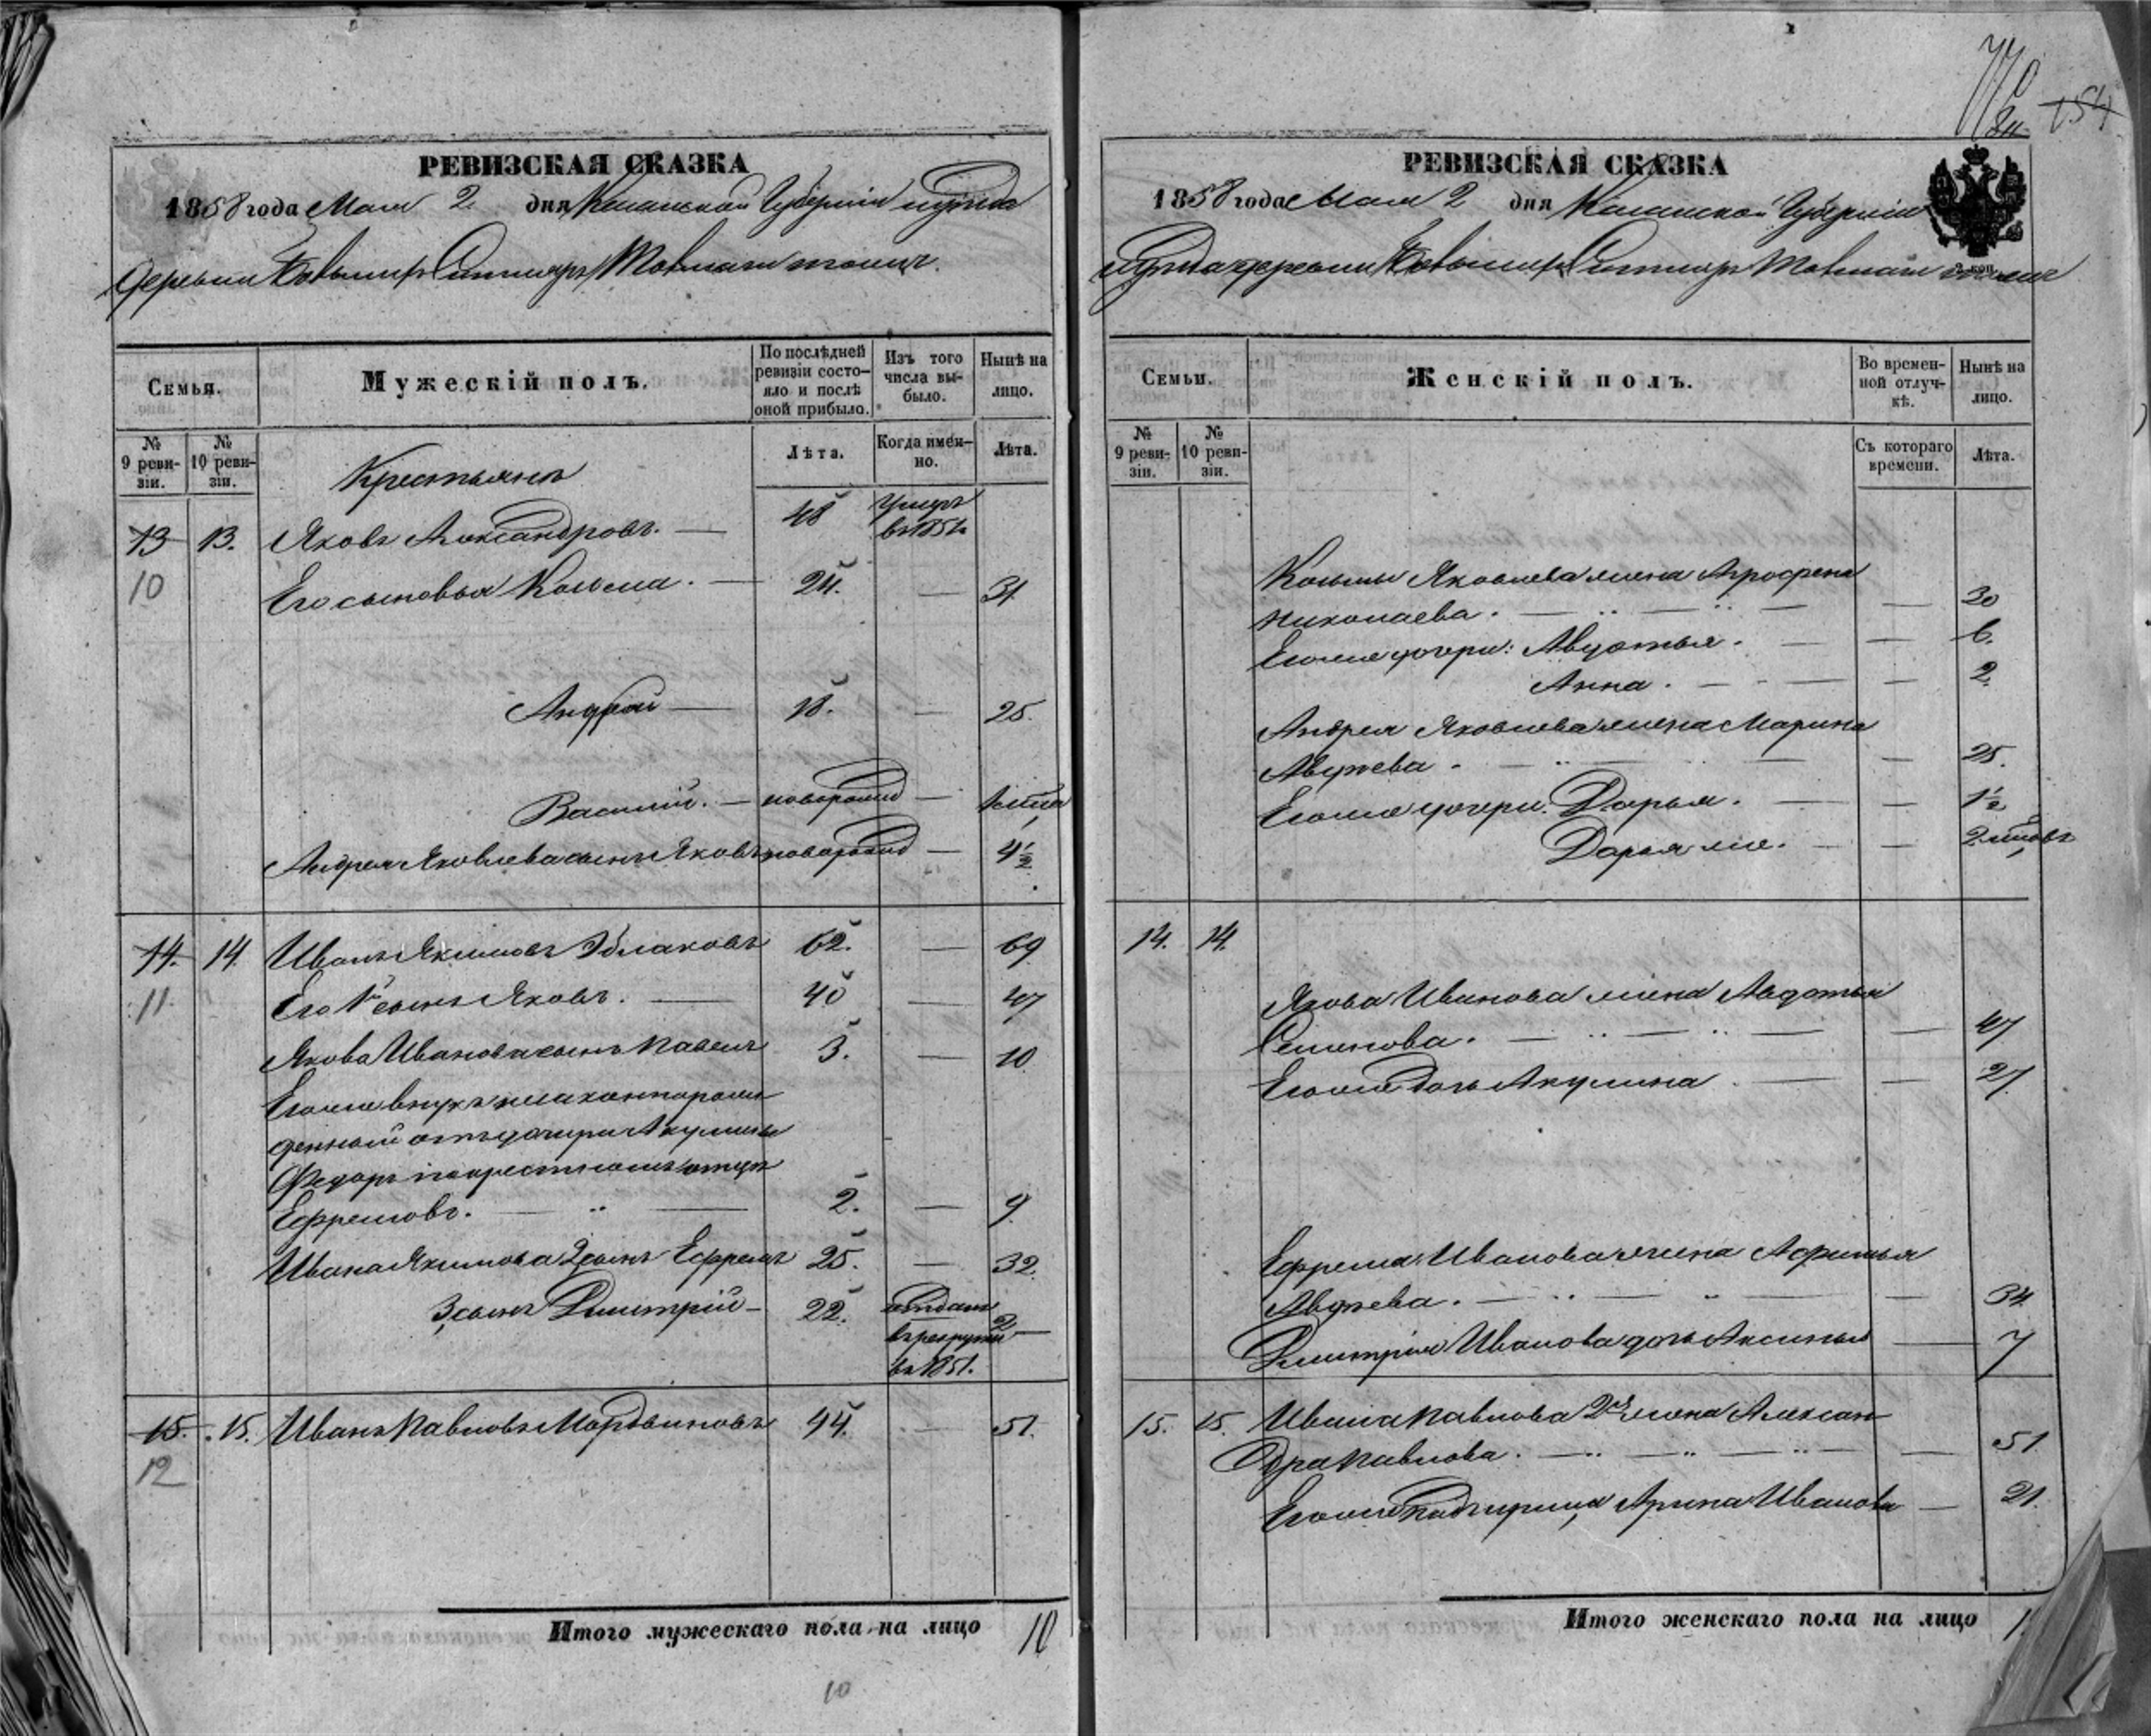 РЕВИЗСКАЯ СКАЗКА
1858 года Мая 2 дня Казанской Губерніи уѣзда
деревни
Семьи.
Мужескій полъ.
По послѣдней ревизіи состояло и послѣ оной прибыло.
Изъ того числа выбыло.
Нынѣ на лицо.
№ 9 ревизіи.
№ 10 ревизіи.
Лѣта.
Когда именно.
Лѣта.
Крестьянъ
13 13. Яковъ Александровъ. — 48 умеръ въ 1851.
10 Его сыновья Козьма. — 24. — 31
Андрей — 18. — 25.
Василий. — новорожд —
Андрея Яковлева сынъ Яковъ новорожд — 4 1/2
14. 14. Иванъ Якимовъ 62. — 69
11. Его 1й сынъ Яковъ. — 40 — 47
Якова Иванова сынъ Павелъ 3. — 10
Егоже внукъ незаконнорож
денный отъ дочери Акулины
Федоръ по крестномъ отцѣ
Ефремовъ. — 2. — 9.
Ивана Якимова 2 сынъ Ефремъ 25. — 32.
3 сынъ Дмитрій — 22. отданъ
въ рекруты —
въ 1851.
15. 15. Иванъ Павловъ Мордвиновъ 44. — 51.
12
Итого мужескаго пола на лицо 10
10
154
РЕВИЗСКАЯ СКАЗКА
1858 года Мая 2 дня Казанской Губерніи
уѣзда деревни
Семьи.
Женскій полъ.
Во временной отлучкѣ.
Нынѣ на лицо.
№ 9 ревизіи.
№ 10 ревизіи.
Съ котораго времени.
Лѣта.
Козьмы Яковлева жена Агрофена
Николаева. — 30
Егоже дочери: Авдотья. — 6.
Анна. — 2.
Андрея Яковлева жена Марина
Авдѣева. — 25.
Егоже дочери: Дарья. — 1 1/2
Дарья же. — 2 мѣсяцовъ
14. 14.
Якова Иванова жена Авдотья
Семенова. — 47
Егоже дочь Акулина — 27
Ефрема Иванова жена Афимья
Авдѣева. — 34
Дмитрія Иванова дочь Аксинья — 7
15. 15. Ивана Павлова 2я жена Алексан
дра Павлова. — 51
Егоже падчерица Арина Иванова — 21.
Итого женскаго пола на лицо